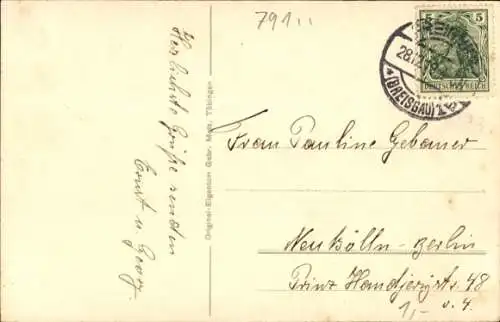 791
Herzlichste Grüße senden
Ernst u. Georg
Original-Eigentum Gebr. Metz, Tübingen
5 5
DEUTSCHES REICH
(BREISGAU)
Frau Pauline Gebauer
Neukölln-Berlin
Prinz Handjerystr. 48
v. 4.
1,-